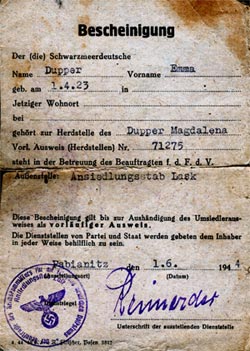 Bescheinigung
Der (die) Schwarzmeerdeutsche
Name Dupper Vorname Emma
geb. am 1.4.23 in
Jetziger Wohnort
bei
gehört zur Herdstelle des Dupper Magdalena
Vorl. Ausweis (Herdstellen) Nr. 71275
steht in der Betreuung des Beauftragten f. d. F. d. V.
Außenstelle: Ansiedlungsstab Lask
Diese Bescheinigung gilt bis zur Aushändigung des Umsiedlerausweises
als vorläufiger Ausweis.
Die Dienststellen von Partei und Staat werden gebeten dem Inhaber
in jeder Weise behilflich zu sein.
Pabianitz 1.6. 194 4
(Ausfertigungsort) (Datum)
Dienstsiegel
Unterschrift der ausstellenden Dienststelle